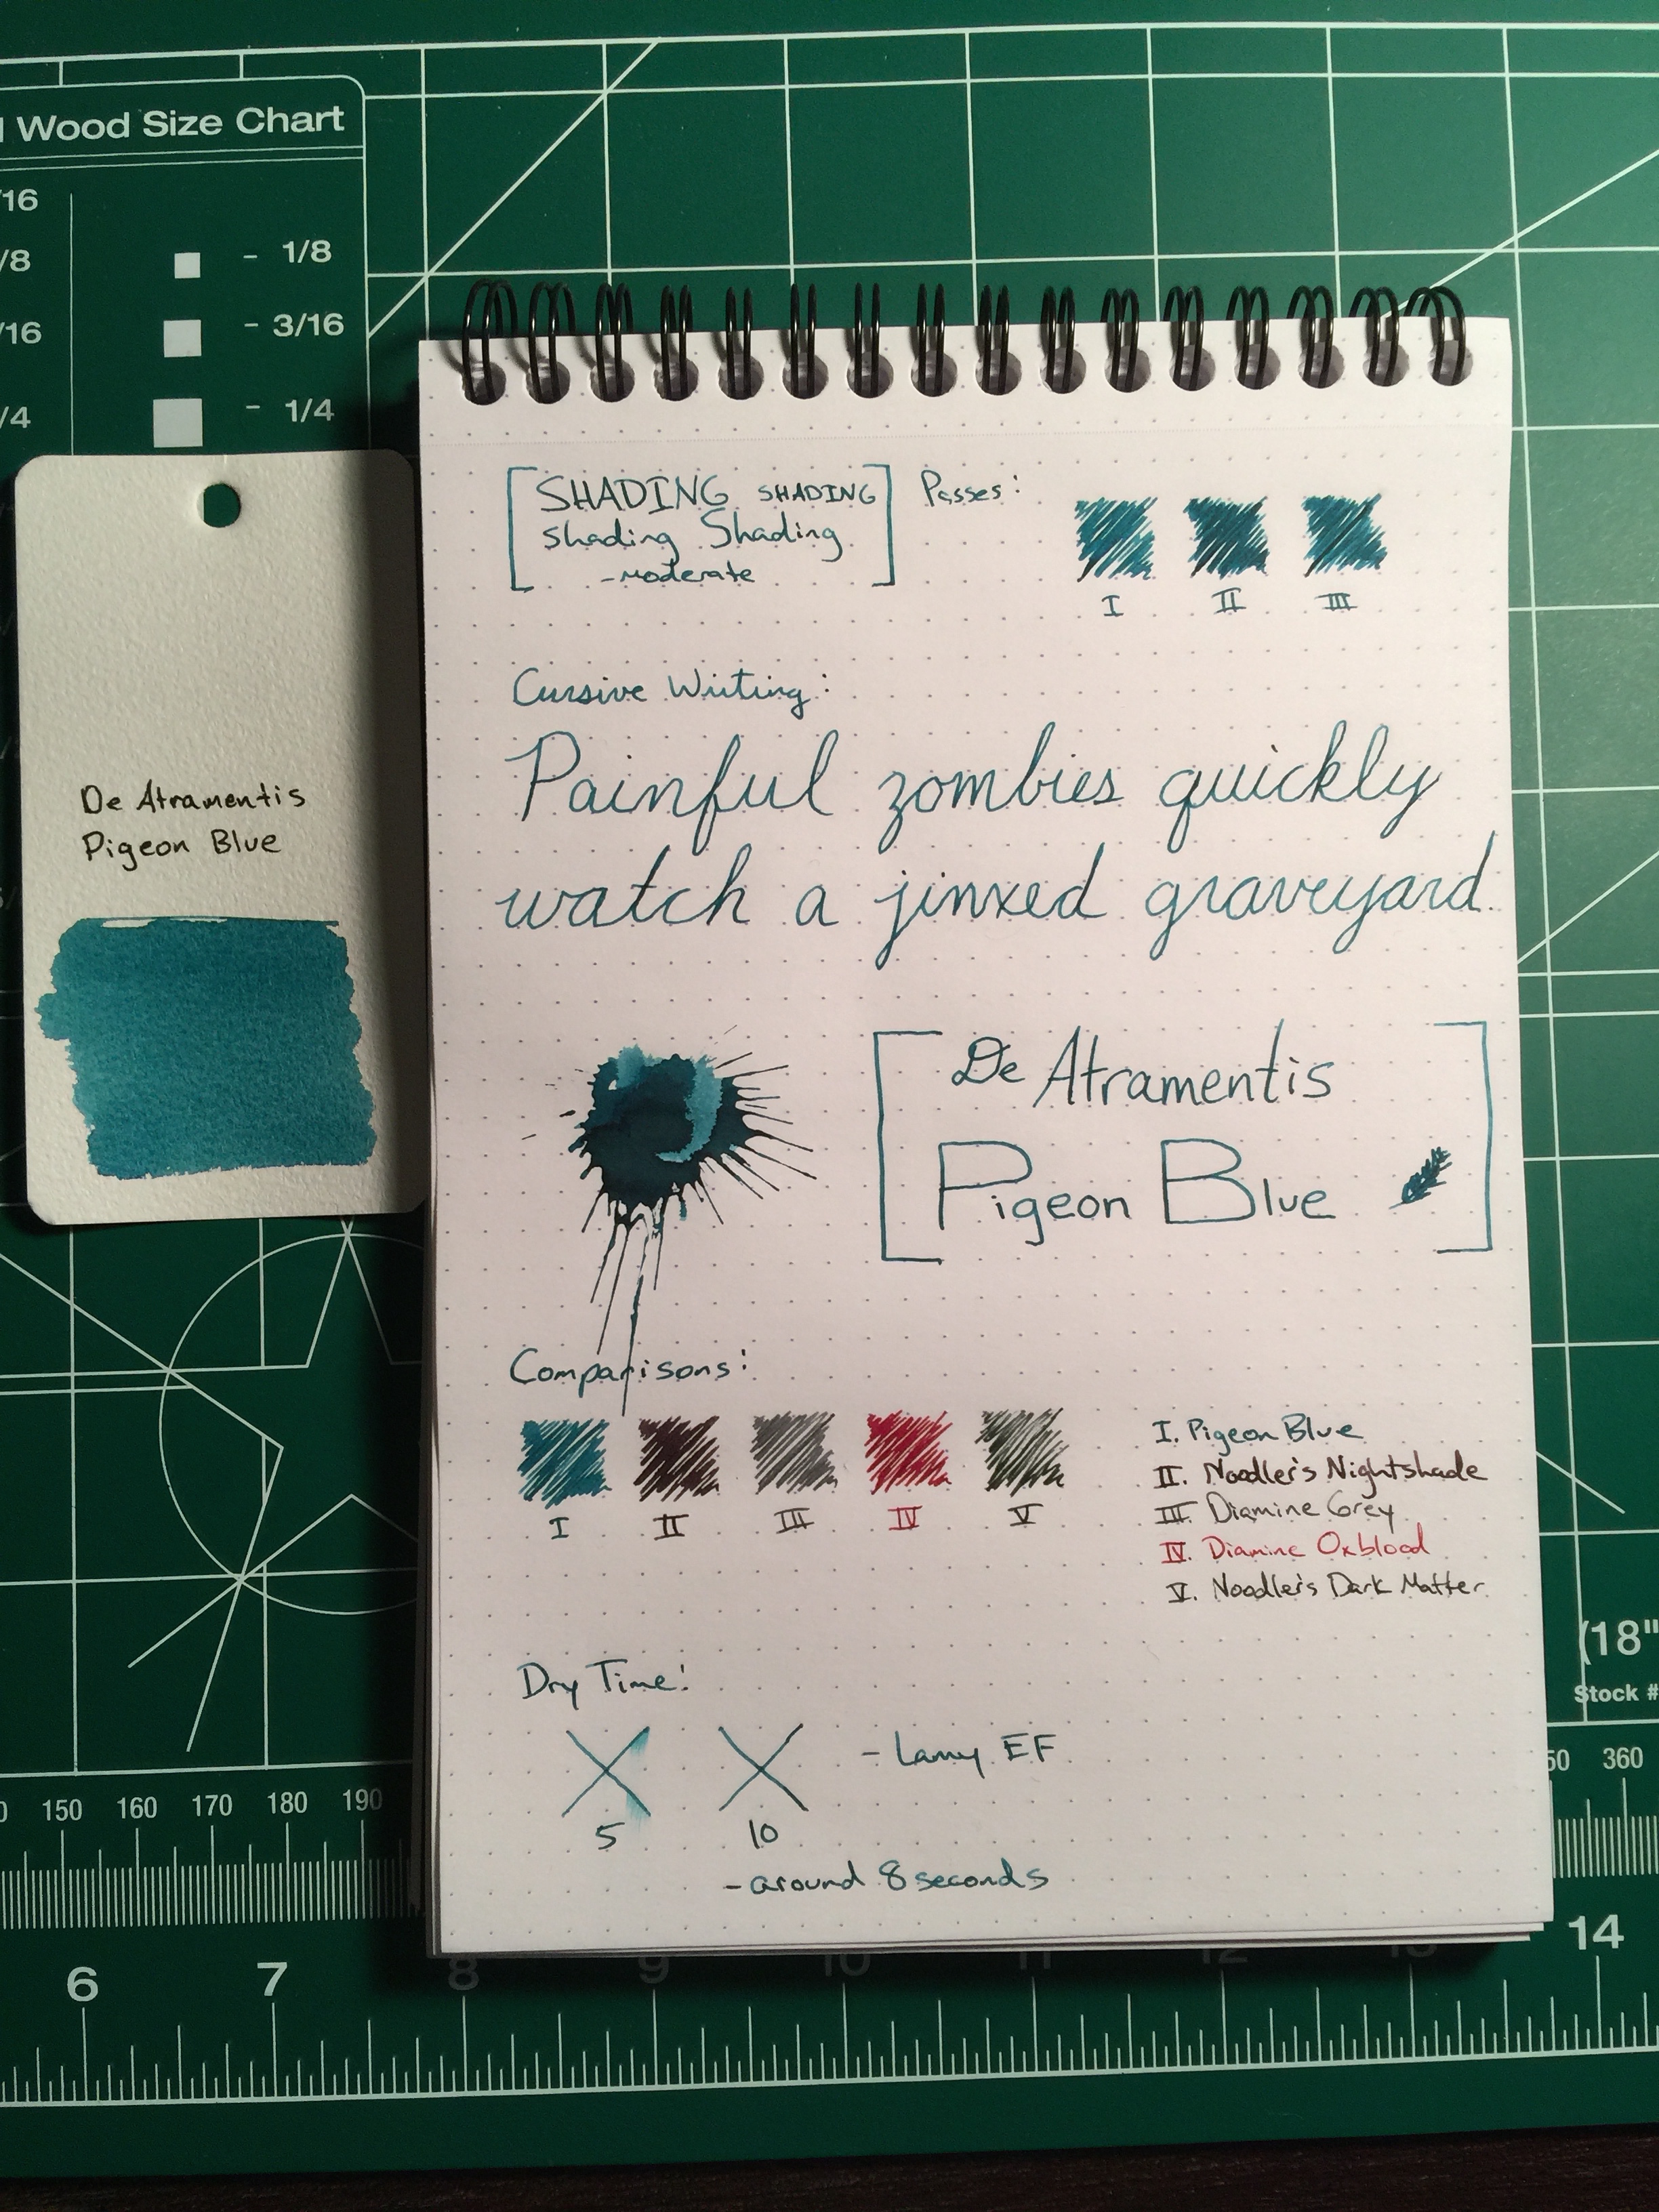 Wood Size Chart
/16
/8
- 1/8
/16
- 3/16
/4
- 1/4
De Atramentis
Pigeon Blue
SHADING SHADING
shading Shading
-moderate
Passes:
I II III
Cursive Writing:
Painful zombies quickly
watch a jinxed graveyard.
De Atramentis
Pigeon Blue
Comparisons:
I II III IV V
I. Pigeon Blue
II. Noodler's Nightshade
III. Diamine Grey
IV. Diamine Oxblood
V. Noodler's Dark Matter
Dry Time:
- Lamy EF
5 10
- around 8 seconds
(18"
Stock #
150 160 170 180 190
50 360
6 7 8 9 10 11 12 13 14